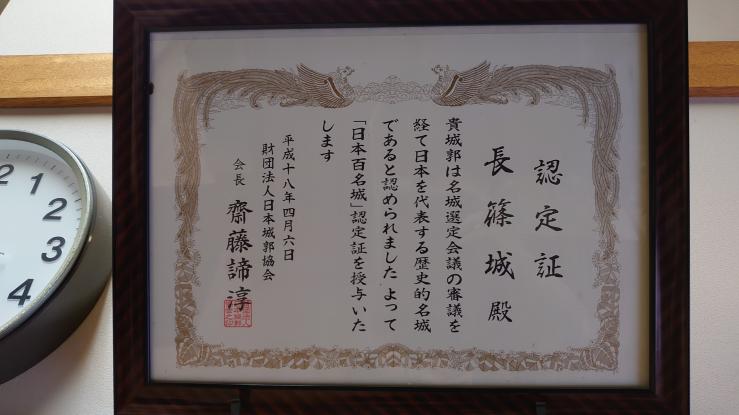 認定証
長篠城殿
貴城郭は名城選定会議の審議を
経て日本を代表する歴史的名城
であると認められました よって
「日本百名城」認定証を授与いた
します
平成十八年四月六日
財団法人日本城郭協会
会長 齋藤諦淳
2
1
2
3
4